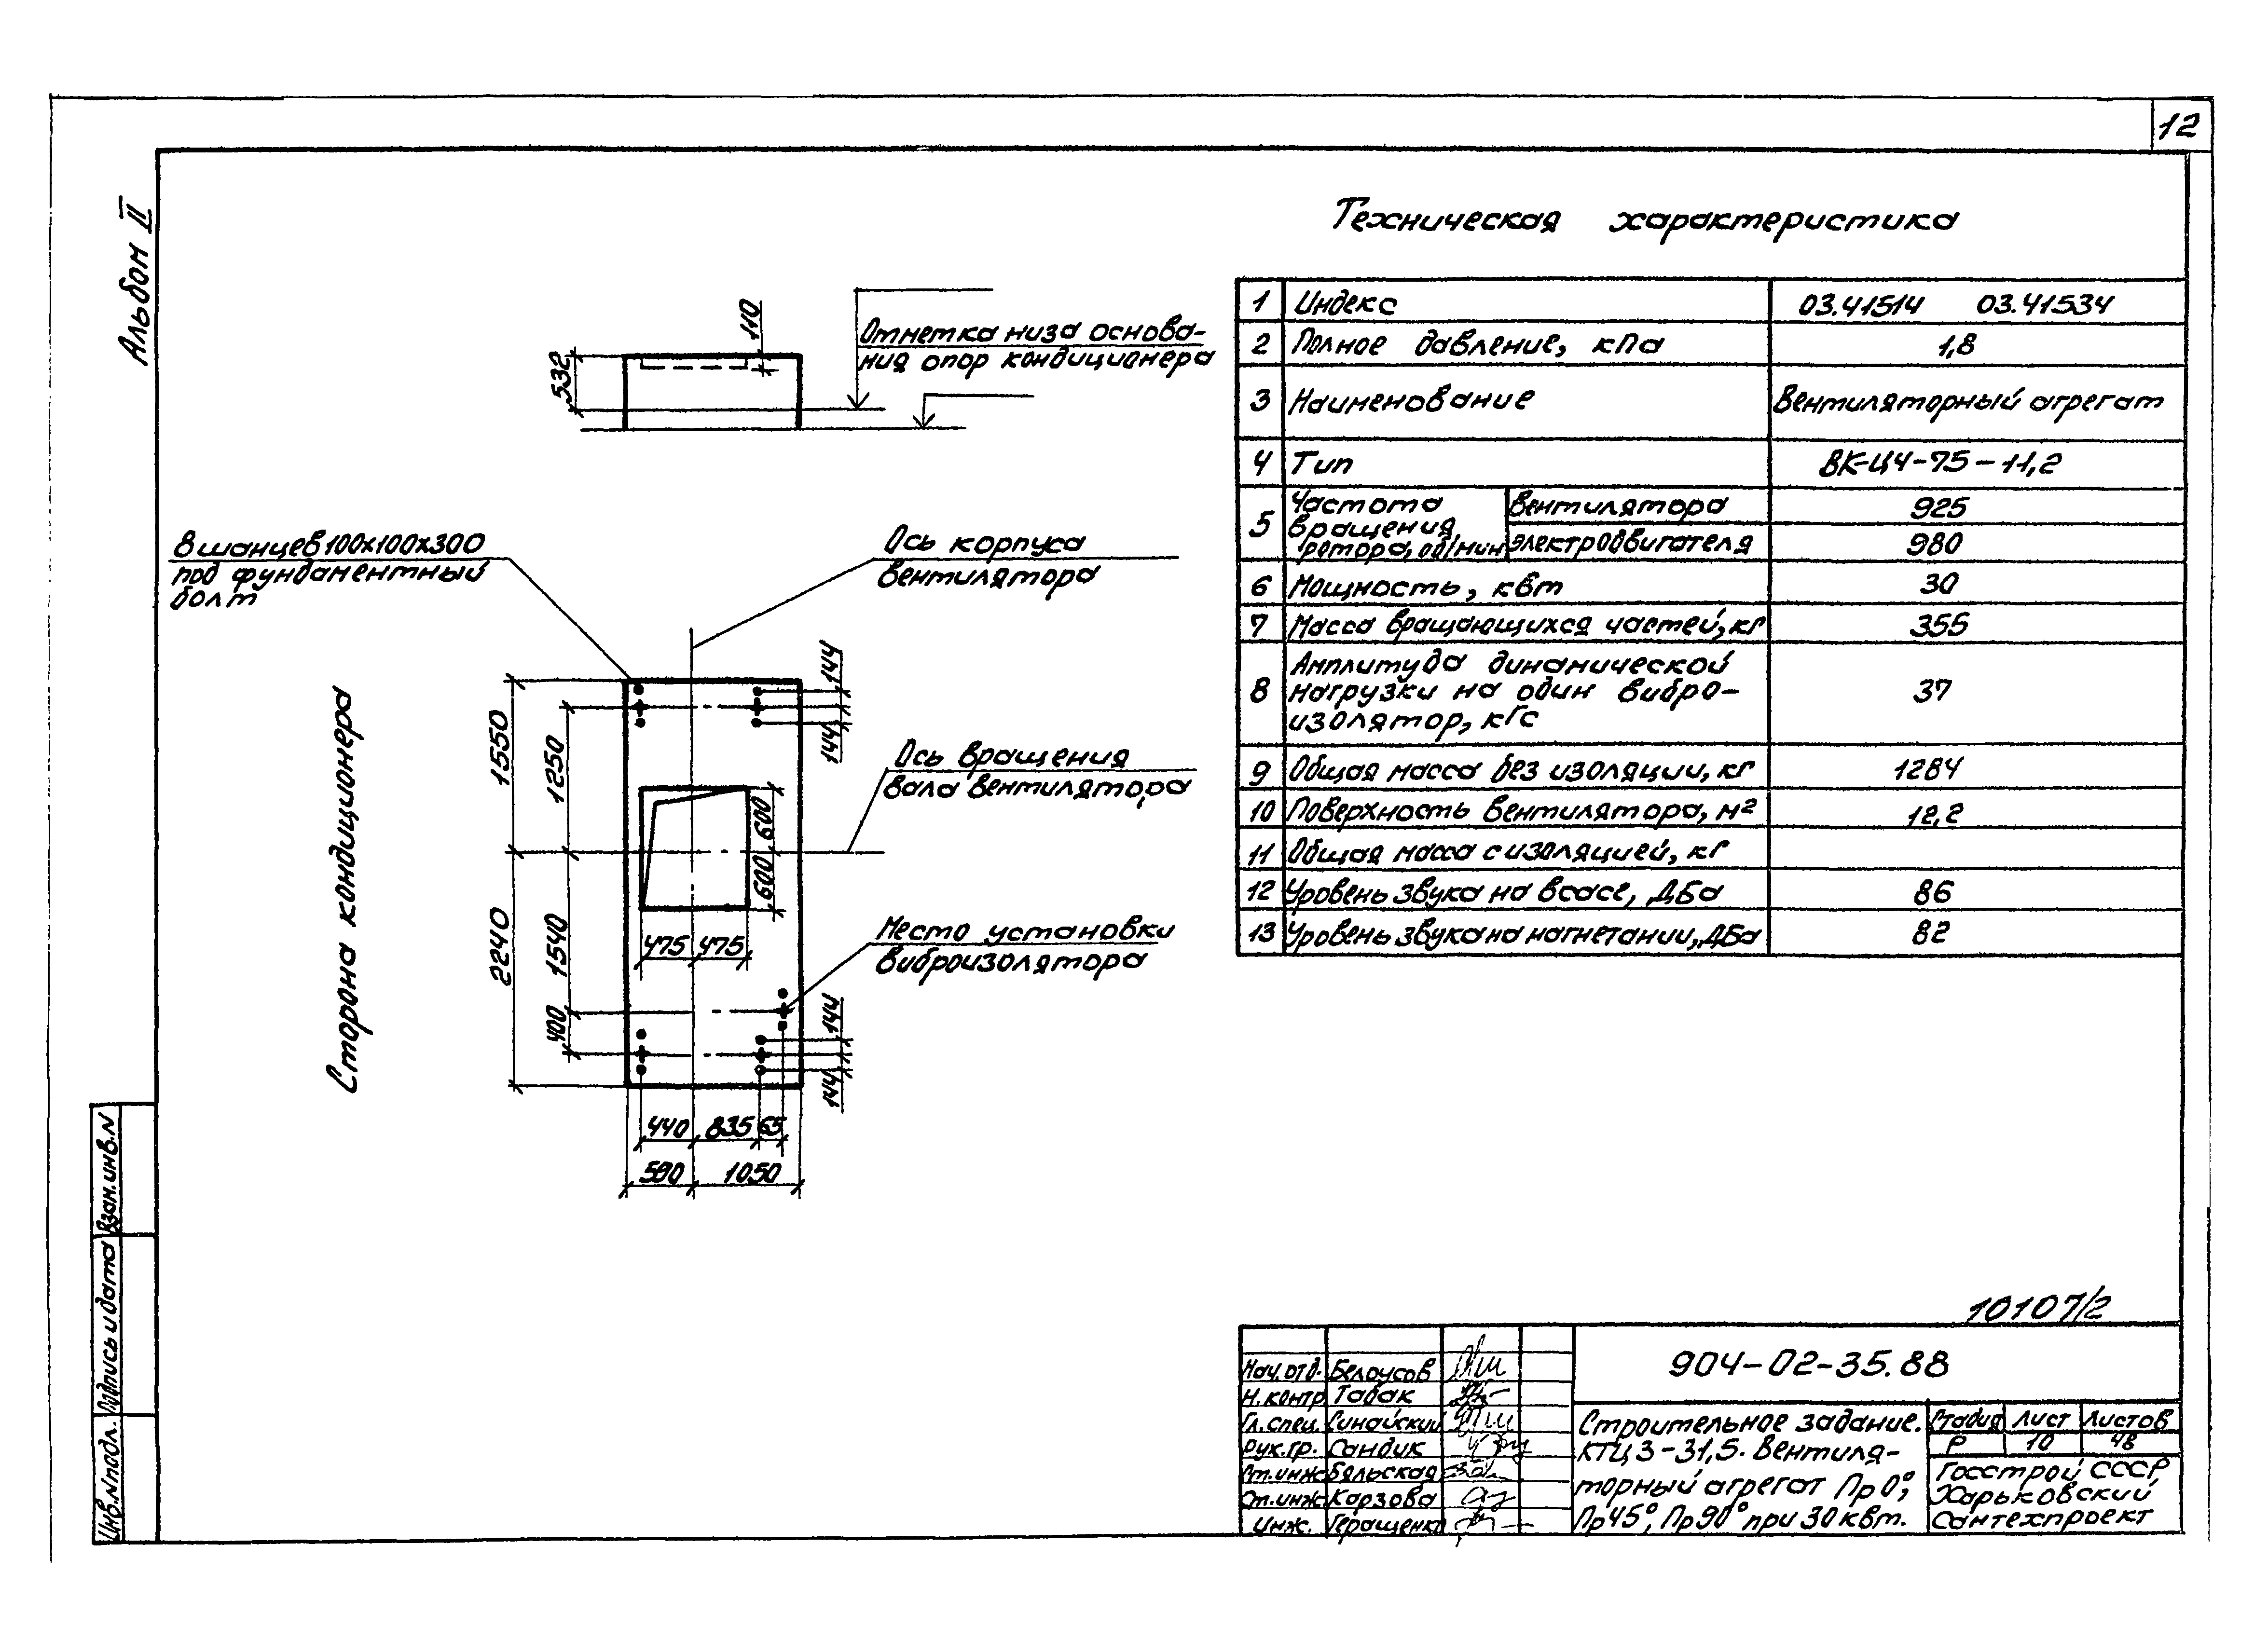 12
Альбом II
Техническая характеристика
1 Индекс 03.41514 03.41534
2 Полное давление, кПа 1,8
3 Наименование Вентиляторный агрегат
4 Тип ВК-Ц4-75-11,2
5 Частота вращения ротора, об/мин
вентилятора 925
электродвигателя 980
6 Мощность, квт 30
7 Масса вращающихся частей, кг 355
8 Амплитуда динамической
нагрузки на один вибро-
изолятор, кгс 37
9 Общая масса без изоляции, кг 1284
10 Поверхность вентилятора, м² 12,2
11 Общая масса с изоляцией, кг
12 Уровень звука на всасе, ДБа 86
13 Уровень звука на нагнетании, ДБа 82
110
532
Отметка низа основа-
ния опор кондиционера
8 шанцев 100х100х300
под фундаментный
болт
Ось корпуса
вентилятора
Ось вращения
вала вентилятора
Место установки
виброизолятора
Сторона кондиционера
1550
1250
2240
1540
400
144
144
600
600
475 475
144
144
440 835 65
590 1050
Взам.инв.N
Подпись и дата
Инв.N подл.
10107/2
904-02-35.88
Нач.отд. Белоусов
Н.контр. Табак
Гл.спец. Синайский
Рук.гр. Сандик
Ст.инж. Бяльская
Ст.инж. Карзова
Инж. Геращенко
Строительное задание.
КТЦ 3-31,5. Вентиля-
торный агрегат Пр 0°,
Пр 45°, Пр 90° при 30 квт.
Стадия Лист Листов
Р 10 48
Госстрой СССР
Харьковский
Сантехпроект